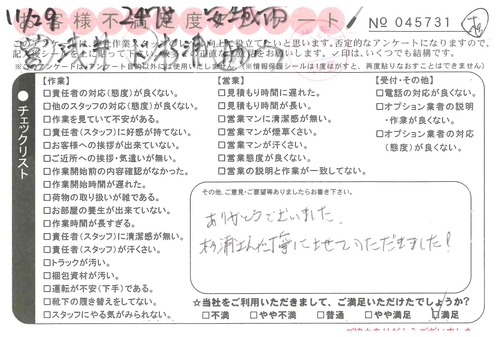 11/29
お客様不満足度アンケート
2472
安城市
No 045731
このアンケートは、
否定的なアンケートになりますので、
お願いします。✓印は、いくつでも結構です。
(※情報保護シールは1度がすと、再度貼りなおすことはできません)
チェックリスト
【作業】
□責任者の対応(態度)が良くない。
□他のスタッフの対応(態度)が良くない。
□作業を見ていて不安がある。
□責任者(スタッフ)に好感が持てない。
□お客様への挨拶が出来ていない。
□ご近所への挨拶・気遣いが無い。
□作業開始前の内容確認がなかった。
□作業開始時間が遅れた。
□荷物の取り扱いが雑である。
□お部屋の養生が出来ていない。
□作業時間が長すぎる。
□責任者(スタッフ)に清潔感が無い。
□責任者(スタッフ)が汗くさい。
□トラックが汚い。
□梱包資材が汚い。
□運転が不安(下手)である。
□靴下の履き替えをしてない。
□スタッフにやる気がみられない。
【営業】
□見積もり時間に遅れた。
□見積もり時間が長い。
□営業マンに清潔感が無い。
□営業マンが煙草くさい。
□営業マンが汗くさい。
□営業態度が良くない。
□営業の説明と作業が一致してない。
【受付・その他】
□電話の対応が良くない。
□オプション業者の説明
・作業が良くない。
□オプション業者の対応
(態度)が良くない。
その他、ご意見・ご要望等ありましたらお書き下さい。
ありがとうございました。
杉浦さん
させていただきました!
☆当社をご利用いただきまして、ご満足いただけたでしょうか?
□不満 □やや不満 □普通 □やや満足 □満足
ご協力ありがとうございました